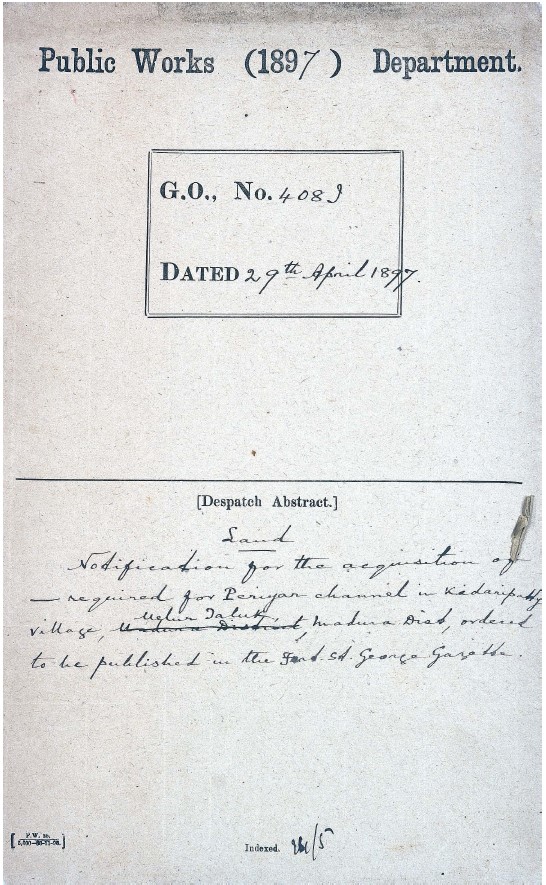 Public Works (1897) Department.
G.O., No. 408 I
DATED 29th April 1897.
[Despatch Abstract.]
Land
Notification for the acquisition of
— required for Periyar channel in Kidaripatty
village, Melur Taluk, Madura District, Madura Dist, ordered
to be published in the Fort St. George Gazette.
Indexed.